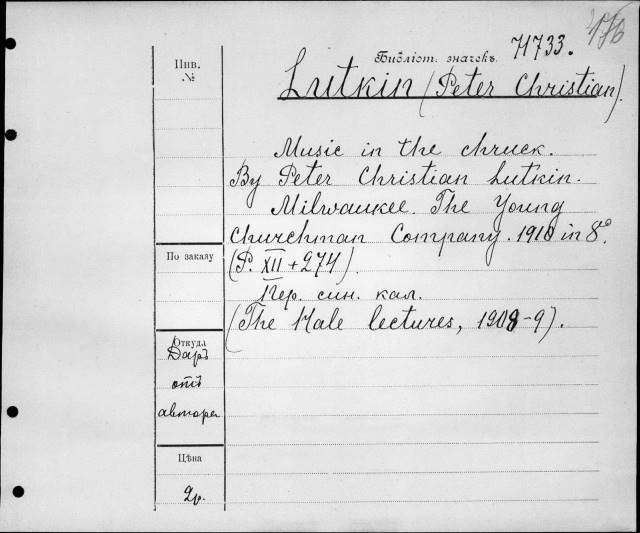 Инв.
№
Библіот. значекъ
71733.
Lutkin (Peter Christian).
Music in the chruck.
By Peter Christian Lutkin.
Milwaukee. The Young
Churchman Company. 1910 in 8º.
(P. XII + 274).
Пер. син. кал.
(The Hale lectures, 1908-9).
По заказу
Откуда
Даръ
отъ
автора
Цѣна
2р.